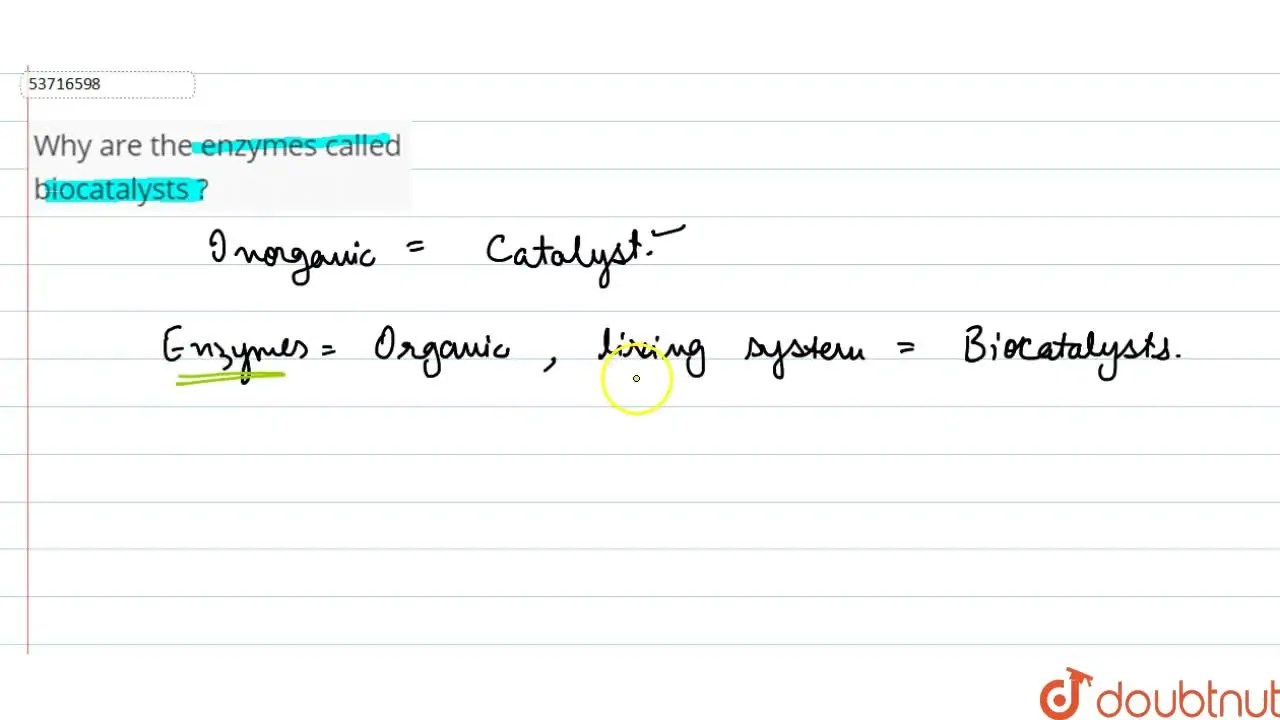 53716598
Why are the enzymes called
biocatalysts ?
Inorganic = Catalyst.
Enzymes = Organic , living system = Biocatalysts.
doubtnut